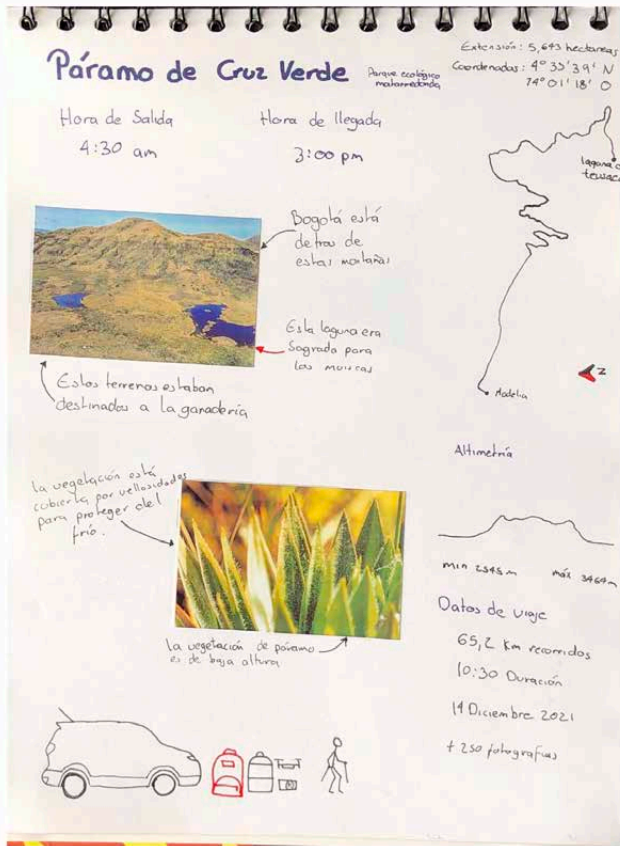 Páramo de Cruz Verde
Parque ecológico
matarredonda
Extensión: 5,643 hectareas
Coordenadas: 4° 35' 39' N
74° 01' 18' O
Hora de Salida
4:30 am
Hora de llegada
3:00 pm
laguna
Bogotá está
detras de
estas montañas
Esta laguna era
Sagrada para
los muiscas
Estos terrenos estaban
destinados a la ganadería
Madelia
Z
Altimetría
min 2545 m
máx 3464 m
la vegetación está
cubierta por vellosidades
para proteger del
frío.
la vegetación de páramo
es de baja altura
Datos de viaje
65,2 Km recorridos
10:30 Duración
14 Diciembre 2021
+ 250 fotografias